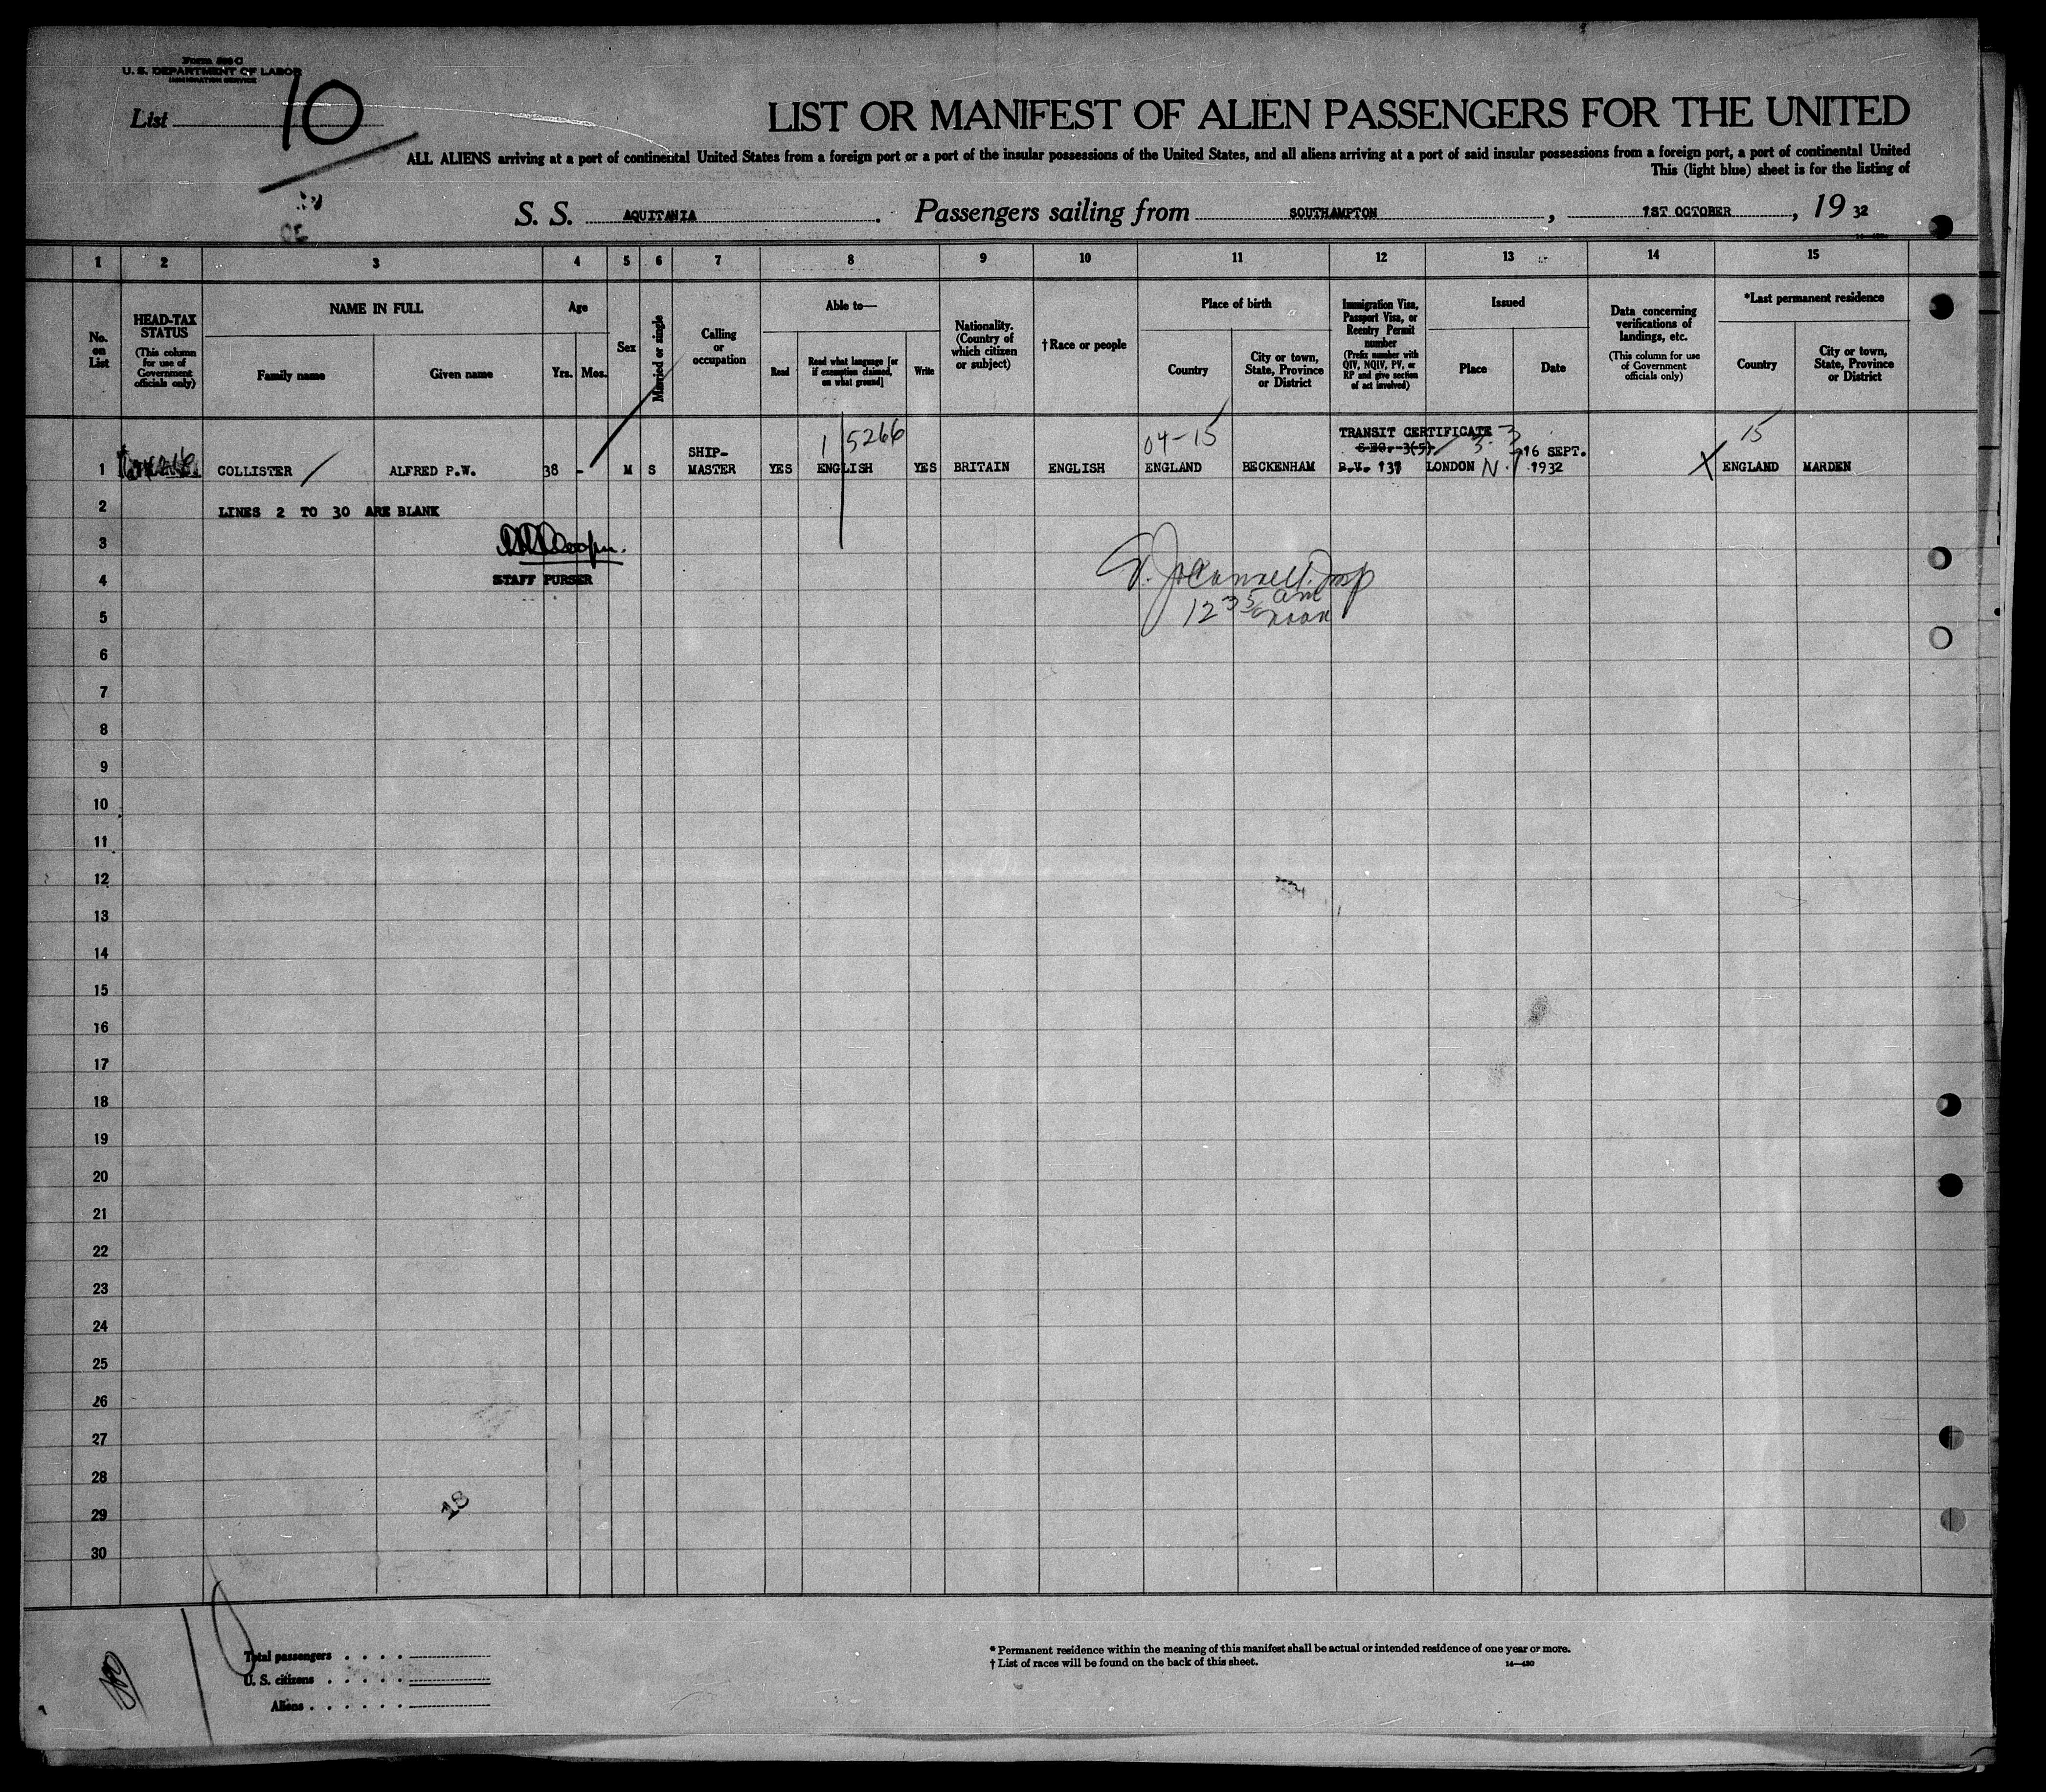 Form 500 C
U. S. DEPARTMENT OF LABOR
IMMIGRATION SERVICE
List 10
LIST OR MANIFEST OF ALIEN PASSENGERS FOR THE UNITED
ALL ALIENS arriving at a port of continental United States from a foreign port or a port of the insular possessions of the United States, and all aliens arriving at a port of said insular possessions from a foreign port, a port of continental United
This (light blue) sheet is for the listing of
S. S. AQUITANIA. Passengers sailing from SOUTHAMPTON, 1ST OCTOBER, 19 32
1 2 3 4 5 6 7 8 9 10 11 12 13 14 15
No. on List
HEAD-TAX STATUS
(This column for use of Government officials only)
NAME IN FULL
Family name
Given name
Age
Yrs. Mos.
Sex
Married or single
Calling or occupation
Able to—
Read
Read what language [or if exemption claimed, on what ground]
Write
Nationality. (Country of which citizen or subject)
† Race or people
Place of birth
Country
City or town, State, Province or District
Immigration Visa, Passport Visa, or Reentry Permit number
(Prefix number with QIV, NQIV, PV, or RP and give section of act involved)
Issued
Place
Date
Data concerning verifications of landings, etc.
(This column for use of Government officials only)
*Last permanent residence
Country
City or town, State, Province or District
1 5266 04-15 TRANSIT CERTIFICATE 3-3 15
SHIP- SEC. 3(5) 16 SEPT.
1 COLLISTER ALFRED P.W. 38 - M S MASTER YES ENGLISH YES BRITAIN ENGLISH ENGLAND BECKENHAM P.V. 131 LONDON 1932 X ENGLAND MARDEN
2 LINES 2 TO 30 ARE BLANK
3
4 STAFF PURSER
5 12 35 am noon
6
7
8
9
10
11
12
13
14
15
16
17
18
19
20
21
22
23
24
25
26
27
28
29
30
18
10
Total passengers . . . .
U. S. citizens . . . . .
Aliens . . . . . .
* Permanent residence within the meaning of this manifest shall be actual or intended residence of one year or more.
† List of races will be found on the back of this sheet.
14—430